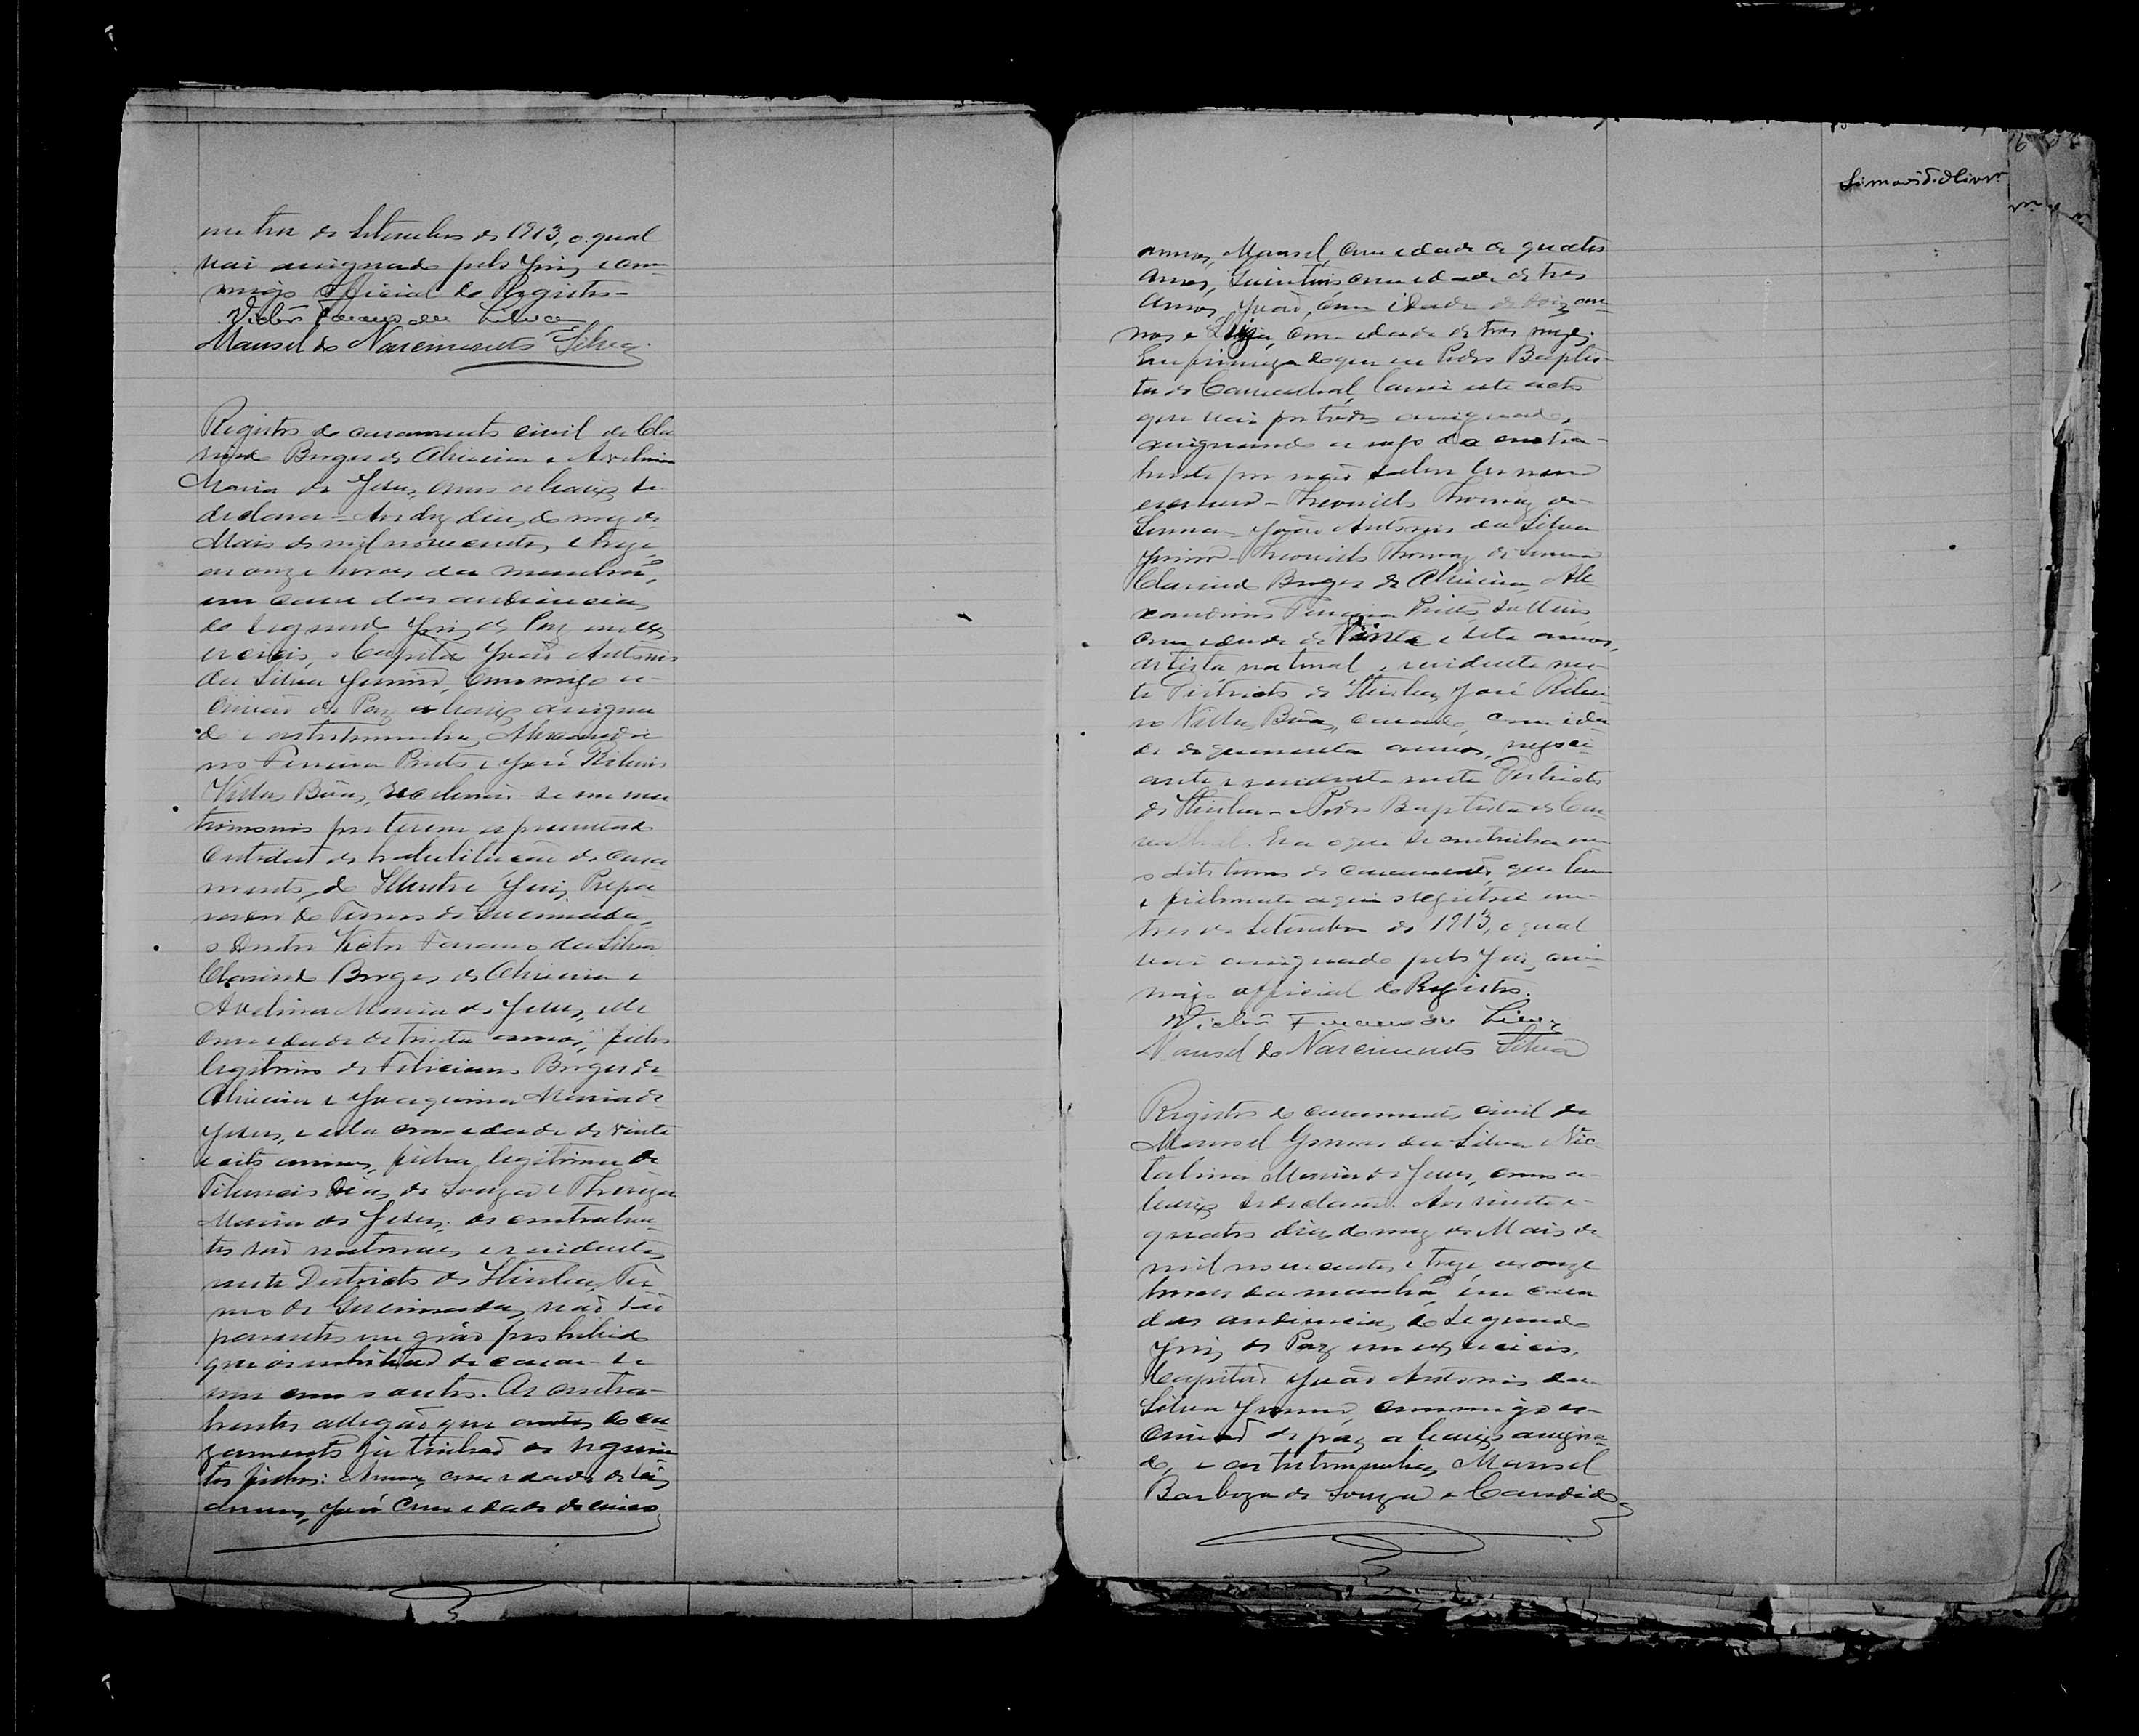 em tres de Setembro de 1913, o qual
vai assignado pelo Juiz, e com-
migo Official do Registro-
Victor Fernando da Silva
Manuel do Nascimento Silva
Registro de casamento civil de Cla
rindo Borges de Oliveira e Avelina
Maria de Jesus, como abaixo se
declara = Aos dez dias do mez de
Maio de mil novecentos e treze,
as onze horas da manhã,
em casa das audiencias
do segundo Juiz de Paz em ex
ercicio, o Capitão João Antonio
da Silva Junior, commigo es-
crivão de Paz abaixo assigna
do e as testemunhas, Alexandri
no Ferreira Pinto e José Ribeiro
Villas Bôas, receberão-se em ma
trimonio por terem apresentado
certidão de habilitação de casa
mento, do Illustre Juiz Prepa
rador do Termo de Queimadas,
o Doutor Victor da Silva
Clarindo Borges de Oliveira e
Avelina Maria de Jesus, elle
com edade de trinta annos, filho
legitimo de Feliciano Borges de
Oliveira e Joaquina Maria de
Jesus, e ella com edade de vinte
e oito annos, filha legitima de
Dias de Souza e Thereza
Maria de Jesus; os contrahen
tes são naturaes e residentes
neste Districto de Itiuba, Ter
mo de Queimadas, não são
parentes em gráo prohibido
que os inhibão de casar-se
um com o outro. Os contra-
hentes allegão que antes do ca
zamento já tinhão os seguin
tes filhos: Anna, com edade de seis
annos, José com edade de cinco
Simões d. Olivra
annos, Manuel, com edade de quatro
annos, Quintino, com edade de tres
annos, João, com idade de dois an-
nos e Luiza, com edade de tres mezes.
Em firmeza do que eu Pedro Baptis-
ta de Carvalhal, lavrei este acto
que vai por todos assignado,
assignando a rogo da contra-
hente por não saber ler nem
escrever - Thomaz de
Senna - João Antonio da Silva
Junior - Thomaz de Senna
Clarindo Borges de Oliveira, Ale
xandrino Ferreira Pinto, solteiro,
com edade de Vinte e sete annos,
artista natural e residente nes-
te Districto de Itiuba, José Ribei
ro Villas Bôas, casado, com ida
de de quarenta annos, negoci-
ante e residente neste Districto
de Itiuba - Pedro Baptista de Car
valhal. Era o que se continha em
o dito termo de casamento, que bem
e fielmente aqui registrei em-
tres de Setembro de 1913, o qual
vai assignado pelo Juiz, com-
migo official do Registro.
Victor Fernando da Silva
Manuel do Nascimento Silva
Registro do casamento civil de
Manuel Gomes da Silva e Vic
talina Maria de Jesus, como a-
baixo se declara. Aos vinte e
quatro dias do mez de Maio de
mil novecentos e treze, as onze
horas da manhã, em casa
das audiencias do segundo
Juiz de Paz em exercicio,
Capitão João Antonio da
Silva Junior, commigo es-
crivão de paz abaixo assigna-
do, e as testemunhas, Manuel
Barboza de Souza e Candido